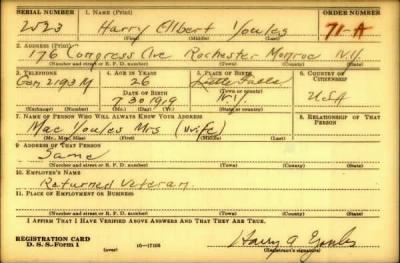 SERIAL NUMBER 1. NAME (Print) ORDER NUMBER
2523 Harry Elbert Youles 71-A
(First) (Middle) (Last)
2. ADDRESS (Print)
176 Congress Ave Rochester Monroe N.Y.
(Number and street or R. F. D. number) (Town) (County) (State)
3. TELEPHONE 4. AGE IN YEARS 5. PLACE OF BIRTH 6. COUNTRY OF CITIZENSHIP
Gen 2193 M 26 Little Falls
DATE OF BIRTH (Town or county)
7 30 1919 N.Y. USA
(Exchange) (Number) (Mo.) (Day) (Yr.) (State or country)
7. NAME OF PERSON WHO WILL ALWAYS KNOW YOUR ADDRESS 8. RELATIONSHIP OF THAT PERSON
Mae Youles Mrs (wife)
(Mr., Mrs., Miss) (First) (Middle) (Last)
9. ADDRESS OF THAT PERSON
Same
(Number and street or R. F. D. number) (Town) (County) (State)
10. EMPLOYER'S NAME
Returned Veteran
11. PLACE OF EMPLOYMENT OR BUSINESS
(Number and street or R. F. D. number) (Town) (County) (State)
I AFFIRM THAT I HAVE VERIFIED ABOVE ANSWERS AND THAT THEY ARE TRUE.
REGISTRATION CARD
D. S. S. Form 1 (over) 16-17105 Harry
(Registrant's signature)